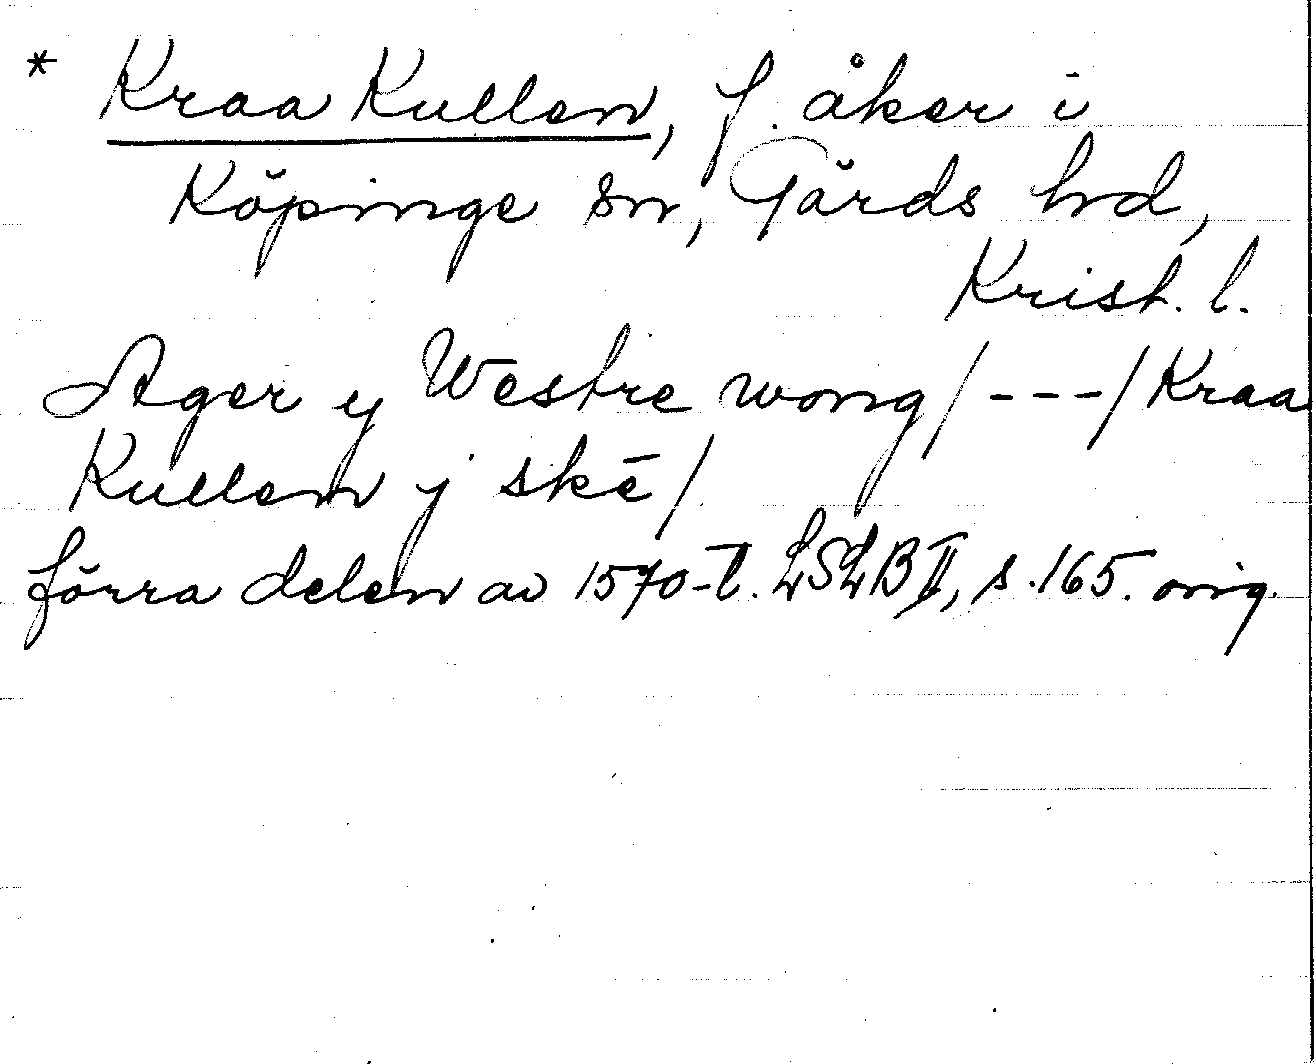 * Kraa Kullen, f. åker i
Köpinge sn, Gärds hd,
Krist. l.
Ager y Westre wong/---/Kraa
Kullen y skē/
förra delen av 1570-t. LSLB II, s. 165. orig.